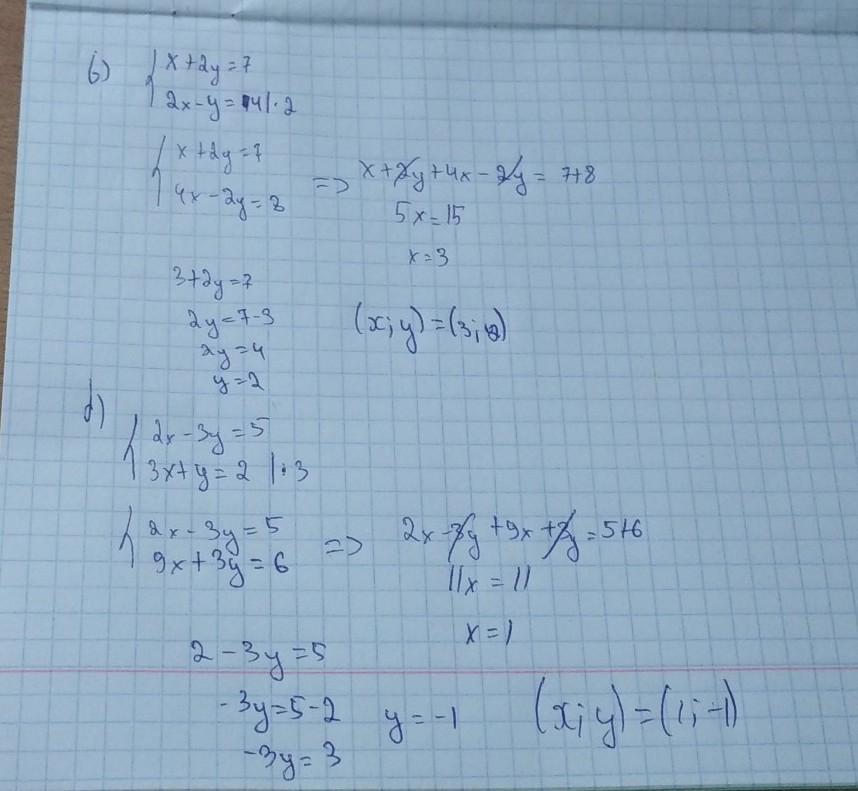 б) { x + 2y = 7
2x - y = 4 | · 2
{ x + 2y = 7
4x - 2y = 8 => x + 2y + 4x - 2y = 7+8
5x = 15
x = 3
3 + 2y = 7
2y = 7 - 3
2y = 4
y = 2
(x; y) = (3; 2)
d) { 2x - 3y = 5
3x + y = 2 | · 3
{ 2x - 3y = 5
9x + 3y = 6 => 2x - 3y + 9x + 3y = 5+6
11x = 11
x = 1
2 - 3y = 5
-3y = 5 - 2
-3y = 3
y = -1
(x; y) = (1; -1)